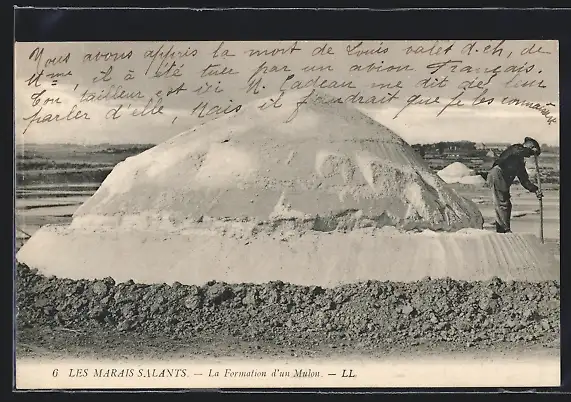 Nous avons appris la mort de Louis valet d. ch, de
Mme, il a été tuer par un avion Français.
Ton tailleur est ici M. Gadeau me dit de leur
parler d'elle, Mais il faudrait que je les connaisse
6 LES MARAIS SALANTS. — La Formation d'un Mulon. — LL.